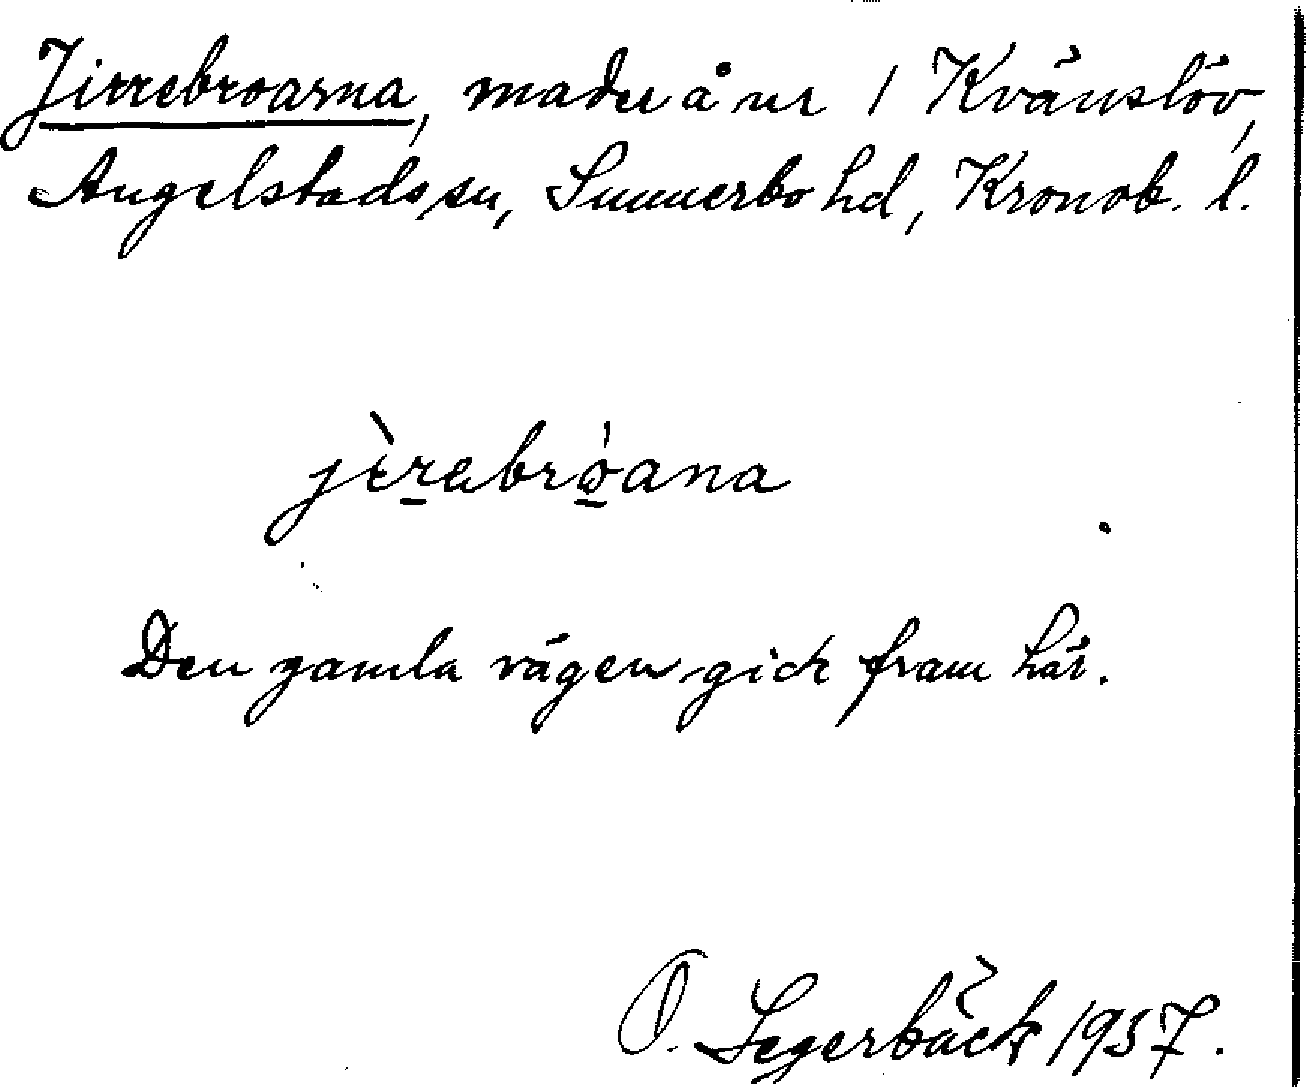 Jirrebroarna, mader å nr 1 Kvänslöv,
Angelstads sn, Sunnerbo hd, Kronob. l.
jìrebróana
Den gamla vägen gick fram här.
O. Segerbäck 1957.